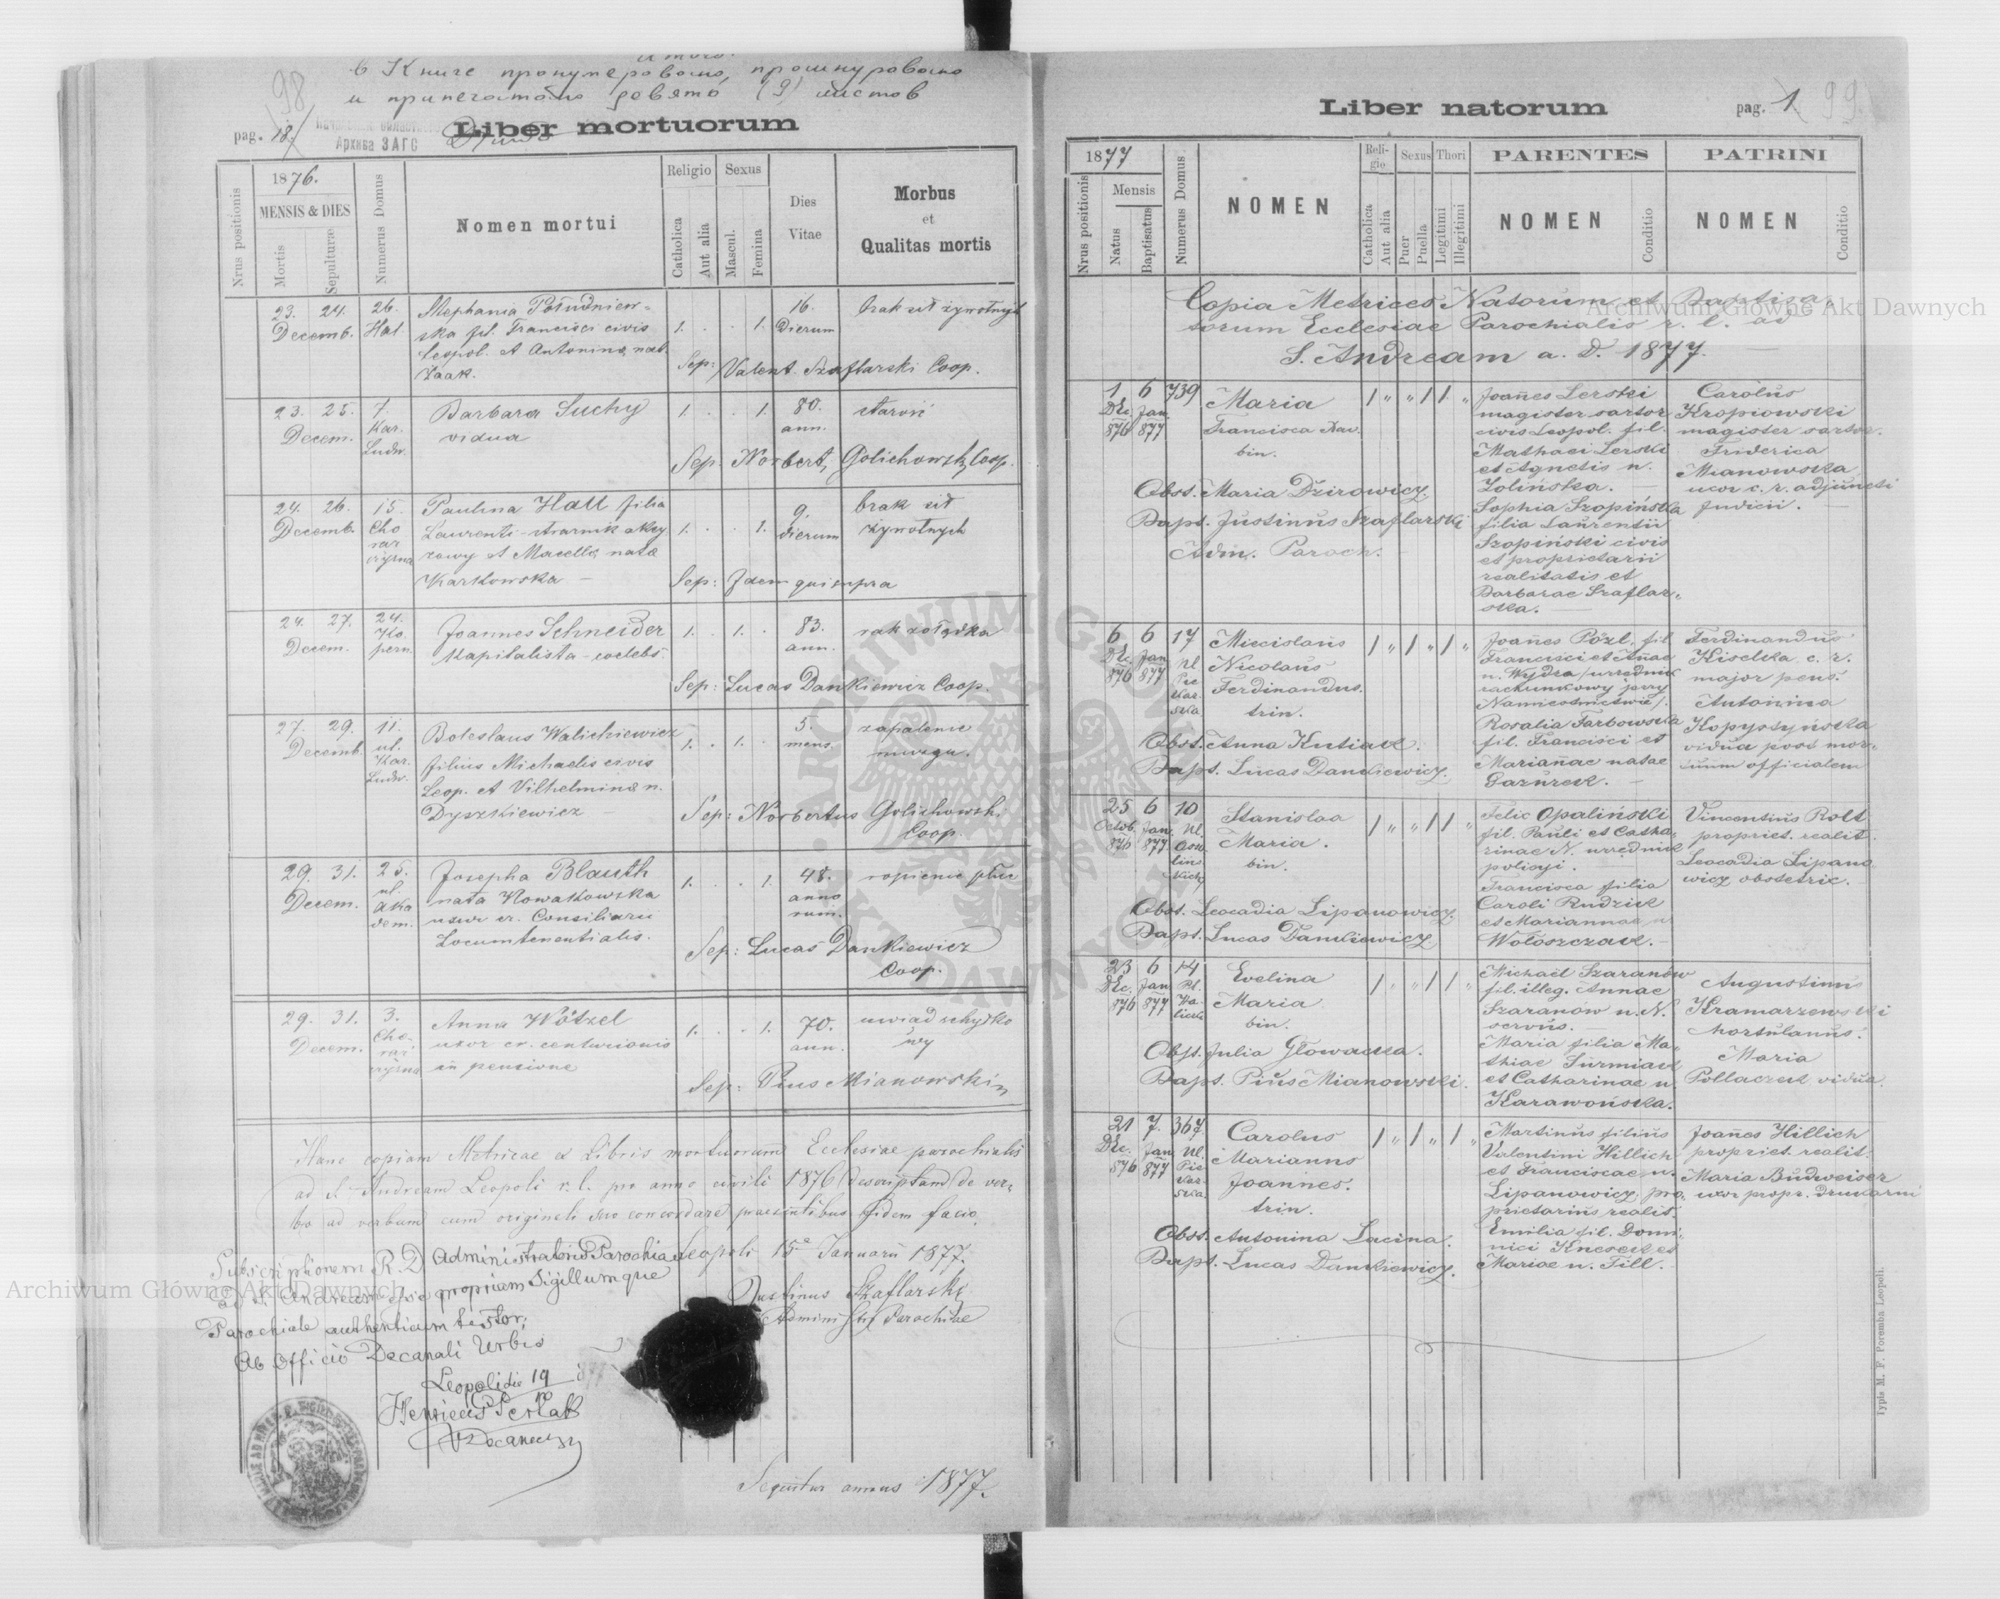 и того
в Книге пронумеровано, прошнуровано
и припечатано девять (9) листов
98
pag. 18
Архива ЗАГС
Liber mortuorum
Nrus positionis
1876.
MENSIS & DIES
Mortis
Sepulturæ
Numerus Domus
Nomen mortui
Religio
Catholica
Aut alia
Sexus
Mascul.
Femina
Dies
Vitae
Morbus
et
Qualitas mortis
23. 24.
Decemb.
26.
Hal
Stephania Południew-
ska fil. Francisci civis
Leopol. et Antonina nat.
Żaak.
1. . . 1.
16.
Dierum
brak sił żywotnych
Sep: Valent. Szaflarski Coop.
23. 25.
Decem.
7.
Kar.
Ludw.
Barbara Suchy
vidua
1. . . 1.
80.
ann.
starość
Sep. Norbert, Golichowski Coop.
24. 26.
Decemb.
15.
Cho
rąż
czyzna
Paulina Hall filia
Laurenti strażnik akcy
zowy et Macella nata
Karkowska –
1. . . 1.
9.
dierum
brak sił
żywotnych
Sep: Idem qui supra
24. 27.
Decem.
24.
Ko
pern.
Joannes Schneider
kapitalista – coelebs
1. . 1. .
83.
ann.
rak żołądka
Sep: Lucas Dankiewicz Coop.
27. 29.
Decemb.
11.
ul.
Kar.
Ludw.
Boleslaus Walichiewicz
filius Michaelis civis
Leop. et Vilhelmina n.
Dyszkiewicz –
1. . 1. .
5.
mens.
zapalenie
mózgu.
Sep: Norbertus Golichowski
Coop.
29. 31.
Decem.
25.
ul.
Aka
dem.
Josepha Blauth
nata Nowakowska
uxor cr. Consiliarii
Locumtenentialis.
1. . . 1.
48.
anno
rum.
ropienie płuc
Sep: Lucas Dankiewicz
Coop.
29. 31.
Decem.
3.
Cho-
rąż
czyzna
Anna Wötzel
uxor cr. centurionis
in pensione
1. . . 1.
70.
ann.
uwiąd schyłko
wy
Sep: Pius Mianowski
Hanc copiam Metricae ex Libris mortuorum Ecclesiae parochialis
ad S. Andream Leopoli r. l. pro anno civili 1876 descriptam de ver-
bo ad verbum cum originali suo concordare praesentibus fidem facio.
Leopoli 15ª Januarii 1877.
Justinus Szaflarski
Administr Parochiae
Subscriptionem R. D Administratoris Parochiae
ad S. Andream esse propriam Sigillumque
Parochiale authenticum testor,
Ab Officio Decanali Urbis
Leopoli die 19
Decanus
Sequitur annus 1877.
Liber natorum
pag. 1
99
Nrus positionis
1877
Mensis
Natus
Baptisatus
Numerus Domus
NOMEN
Reli-
gio
Catholica
Aut alia
Sexus
Puer
Puella
Thori
Legitimi
Illegitimi
PARENTES
NOMEN
Conditio
PATRINI
NOMEN
Conditio
Copia Metrices Natorum et Baptisa-
torum Ecclesiae Parochialis r. l. ad
S. Andream a. D. 1877.
1 6 739
Dec. Jan.
876 877
Maria
Francisca Xav.
bin.
1 „ „ 1 1 „
Joañes Lerski
magister sartor
civis Leopol. fil.
Mathaei Lerski
et Agnetis n.
Zolińska. –
Sophia Szopińska
filia Laurentii
Szopiński civis
et proprietarii
realitatis et
Barbarae Szaflar-
ska. –
Carolus
Kropiowski
magister sartor.
Friderica
Mianowska
uxor c. r. adjuncti
judicii.
Obst. Maria Dzirowicz.
Bapt. Justinus Szaflarski
Adm. Paroch.
6 6 17
Dec. Jan. ul.
876 877 Pie
kar
ska
Miecislaus
Nicolaus
Ferdinandus.
trin.
1 „ 1 „ 1 „
Joañes Pözl. fil.
Francisci et Añae
n. Wydra /urzędnik
rachunkowy przy
Namiestnictwie/.
Rosalia Farbowska
fil. Francisci et
Mariañae natae
Gazurek. –
Ferdinandus
Kiselka c. r.
major pens.
Antonina
Kopystyńska
vidua post mor-
tuum officialem
Obst. Anna Kutiak.
Bapt. Lucas Dankiewicz.
25 6 10
Octob. Jan. ul.
876 877 Osso
lińs
kich
Stanislaa
Maria.
bin.
1 „ „ 1 1 „
Felic Opaliński
fil. Pauli et Catha-
rinae N. urzędnik
policyi.
Francisca filia
Caroli Rudzik
et Mariannae n.
Wołoszczak. –
Vincentius Rolt
propriet. realit.
Leocadia Lipano
wicz obstetric. –
Obst. Leocadia Lipanowicz
Bapt. Lucas Dankiewicz
23 6 14
Dec. Jan. Pl.
876 877 Ha-
licki
Evelina
Maria
bin.
1 „ „ 1 1 „
Michael Szaranów
fil. illeg. Annae
Szaranów n. N.
servus. –
Maria filia Ma-
thiae Surmiak
et Catharinae n.
Karawońska.
Augustinus
Kramarzewski
hortulanus.
Maria
Pollaczek vidua.
Obst. Julia Głowacka.
Bapt. Pius Mianowski.
21 7. 367
Dec. Jan. ul.
876 877 Pie
kar
ska
Carolus
Mariannus
Joannes.
trin.
1 „ 1 „ 1 „
Martinus filius
Valentini Hillich
et Franciscae n.
Lipanowicz pro-
prietarius realit.
Emilia fil. Domi-
nici Knesek et
Mariae n. Till. –
Joañes Hillich
propriet. realit.
Maria Budweiser
uxor propr. drukarni
Obst. Antonina Lacina.
Bapt. Lucas Dankiewicz.
Typis M. F. Poremba Leopoli.
Archiwum Główne Akt Dawnych
Archiwum Główne Akt Dawnych
ARCHIWUM GŁÓWNE AKT DAWNYCH